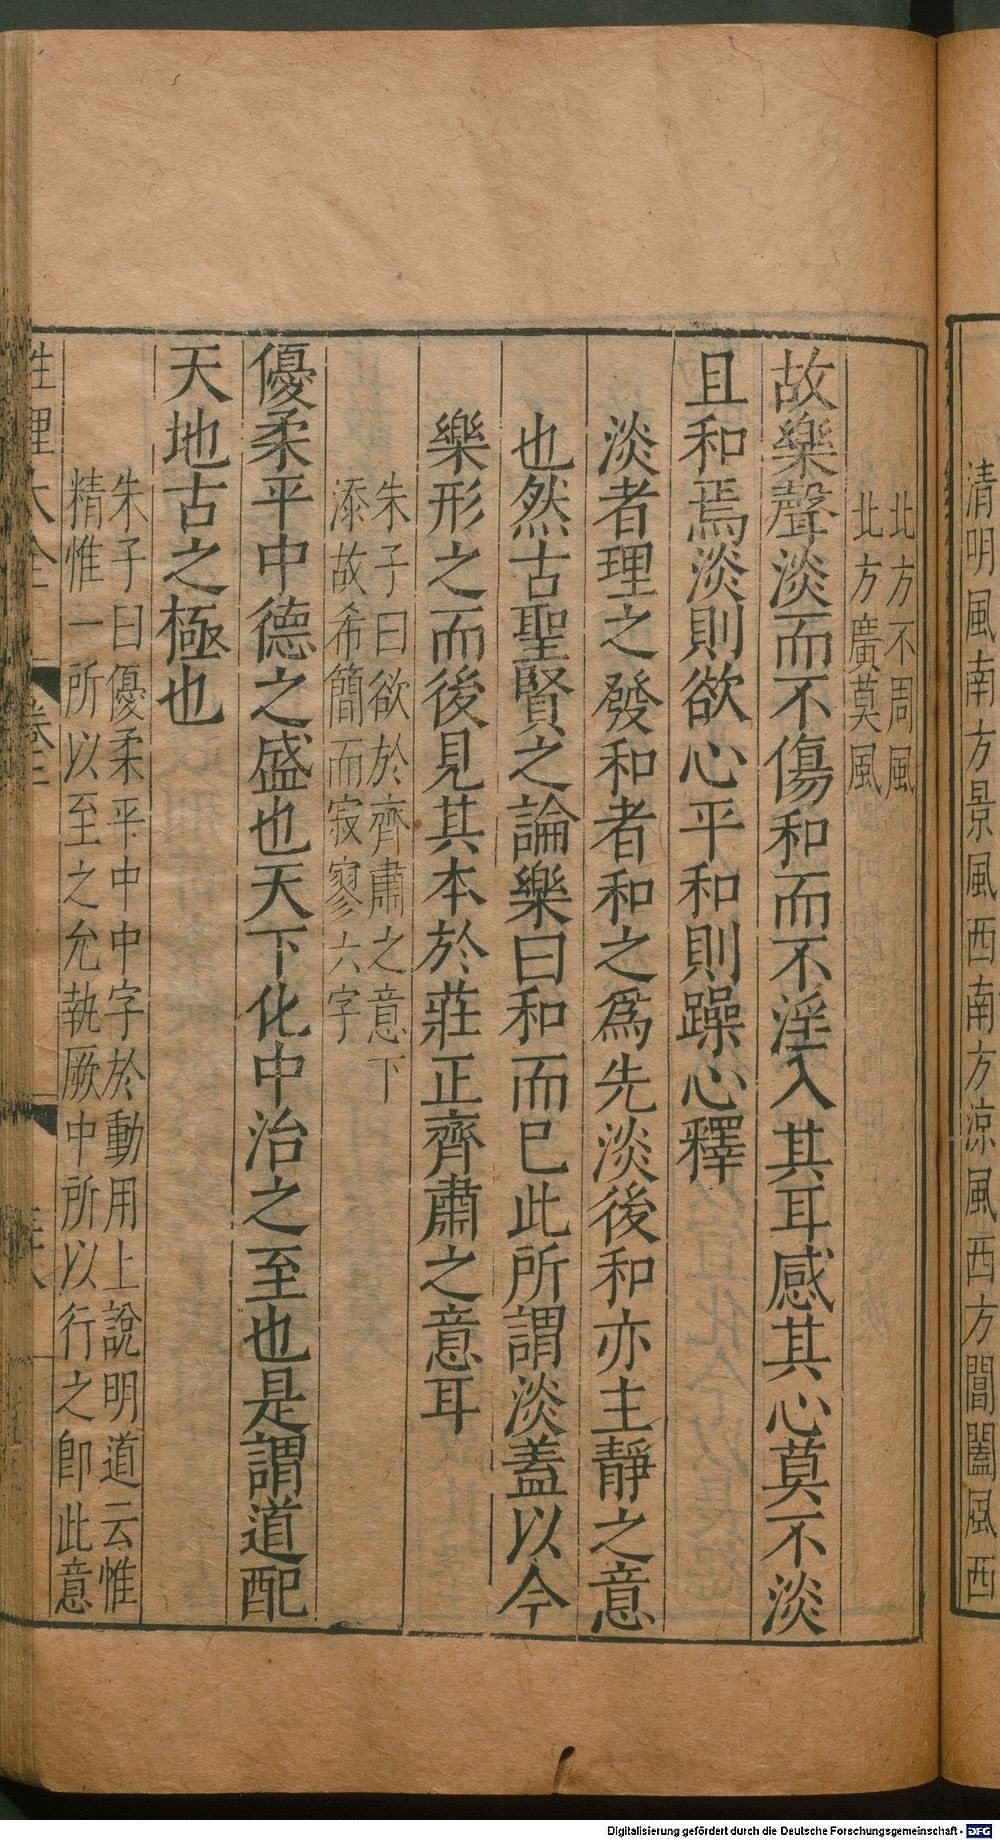 清明風南方景風西南方涼風西方閶闔風西
北方不周風
北方廣莫風
故樂聲淡而不傷和而不淫入其耳感其心莫不淡
且和焉淡則欲心平和則躁心釋
淡者理之發和者和之爲先淡後和亦主靜之意
也然古聖賢之論樂曰和而已此所謂淡蓋以今
樂形之而後見其本於莊正齊肅之意耳
朱子曰欲於齊肅之意下
添故希簡而寂寥六字
優柔平中德之盛也天下化中治之至也是謂道配
天地古之極也
朱子曰優柔平中中字於動用上說明道云惟
精惟一所以至之允執厥中所以行之即此意
性理大全 卷三
Digitalisierung gefördert durch die Deutsche Forschungsgemeinschaft - DFG